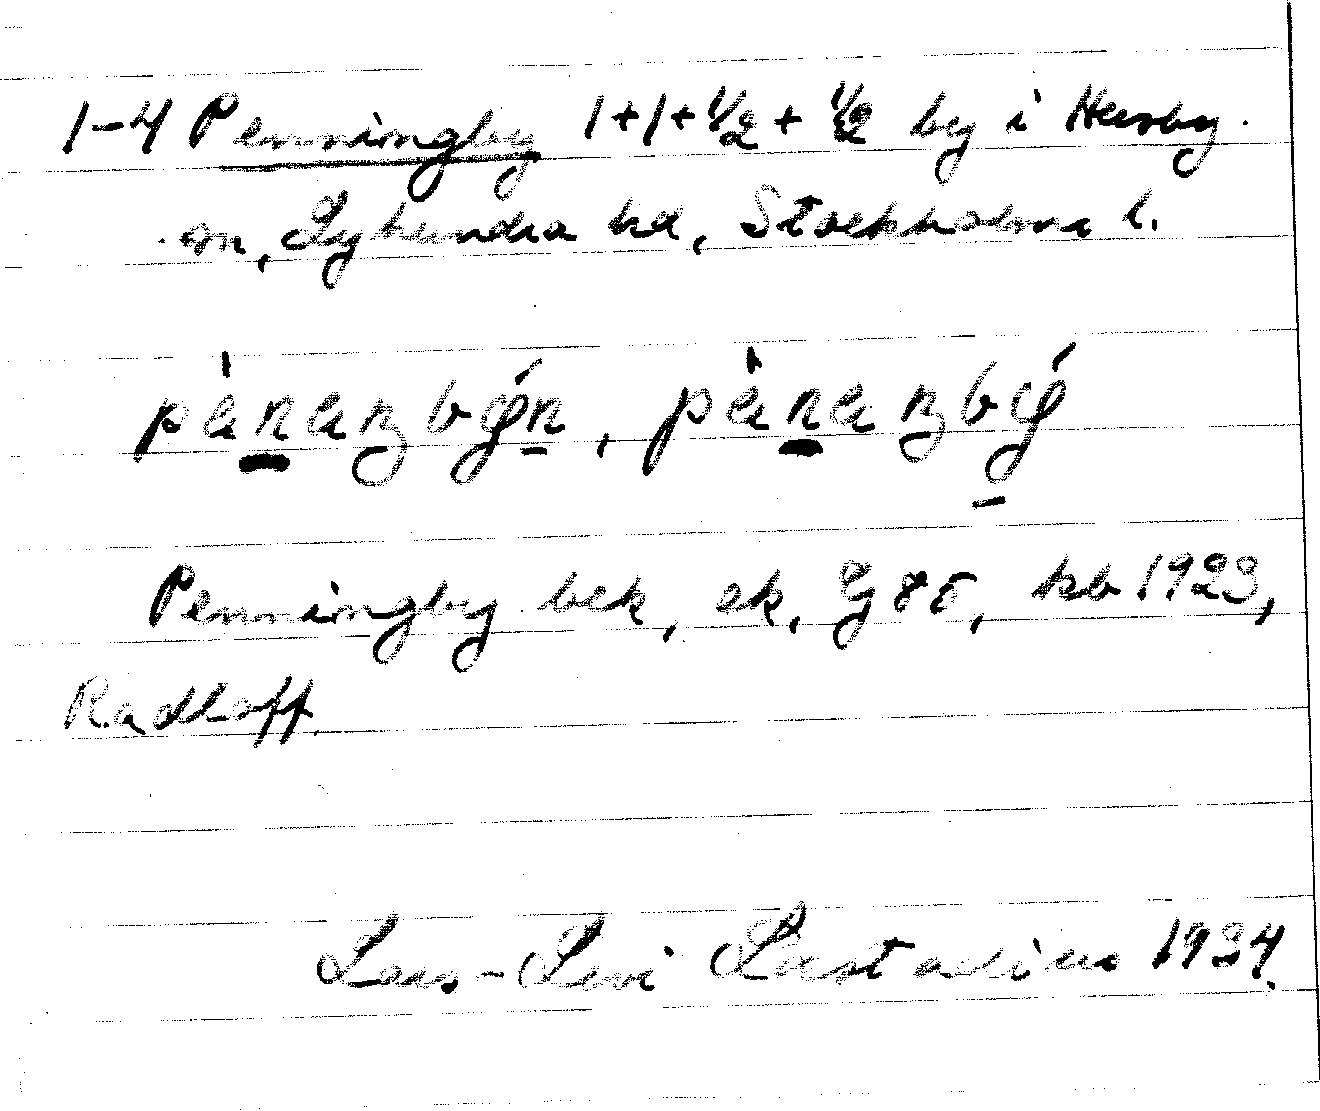 1-4 Penningby 1+1+½+½ by i Husby
sn, Lyhundra hd, Stockholms l.
pànaŋbýn, pànaŋbý
Penningby bek, ek, Gj 85, kb 1923,
Radloff.
Lars-Levi Læstadius 1934.